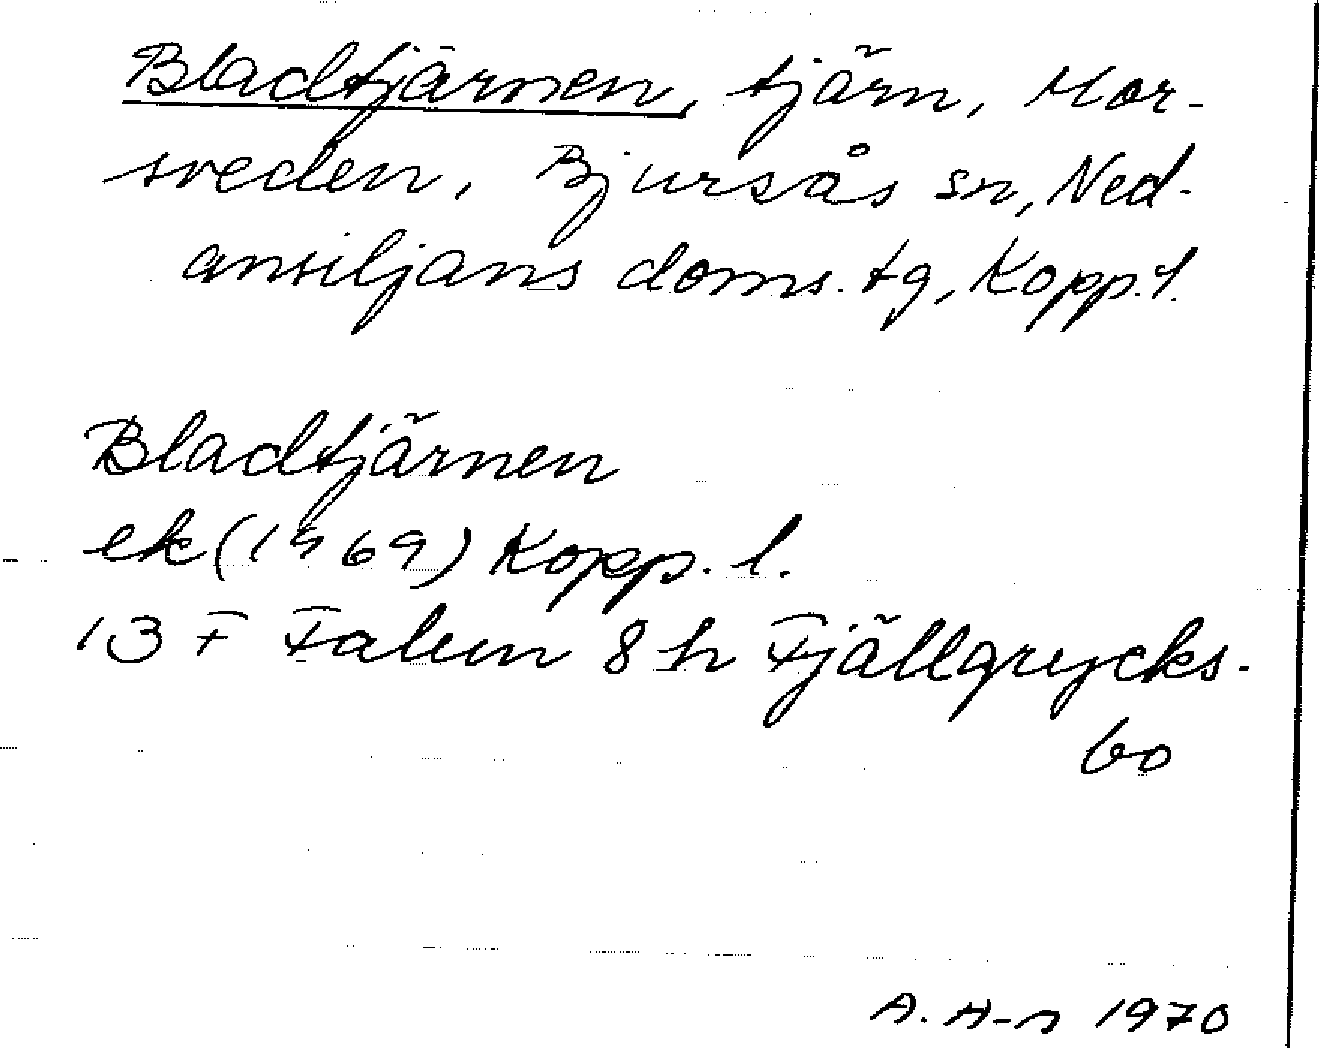 Bladtjärnen, tjärn, Mor-
sveden, Bjursås sn, Ned-
ansiljans doms. tg, Kopp. l.
Bladtjärnen
ek (1969) Kopp. l.
13 F Falun 8 h Fjällgrycks-
bo
A. H-n 1970